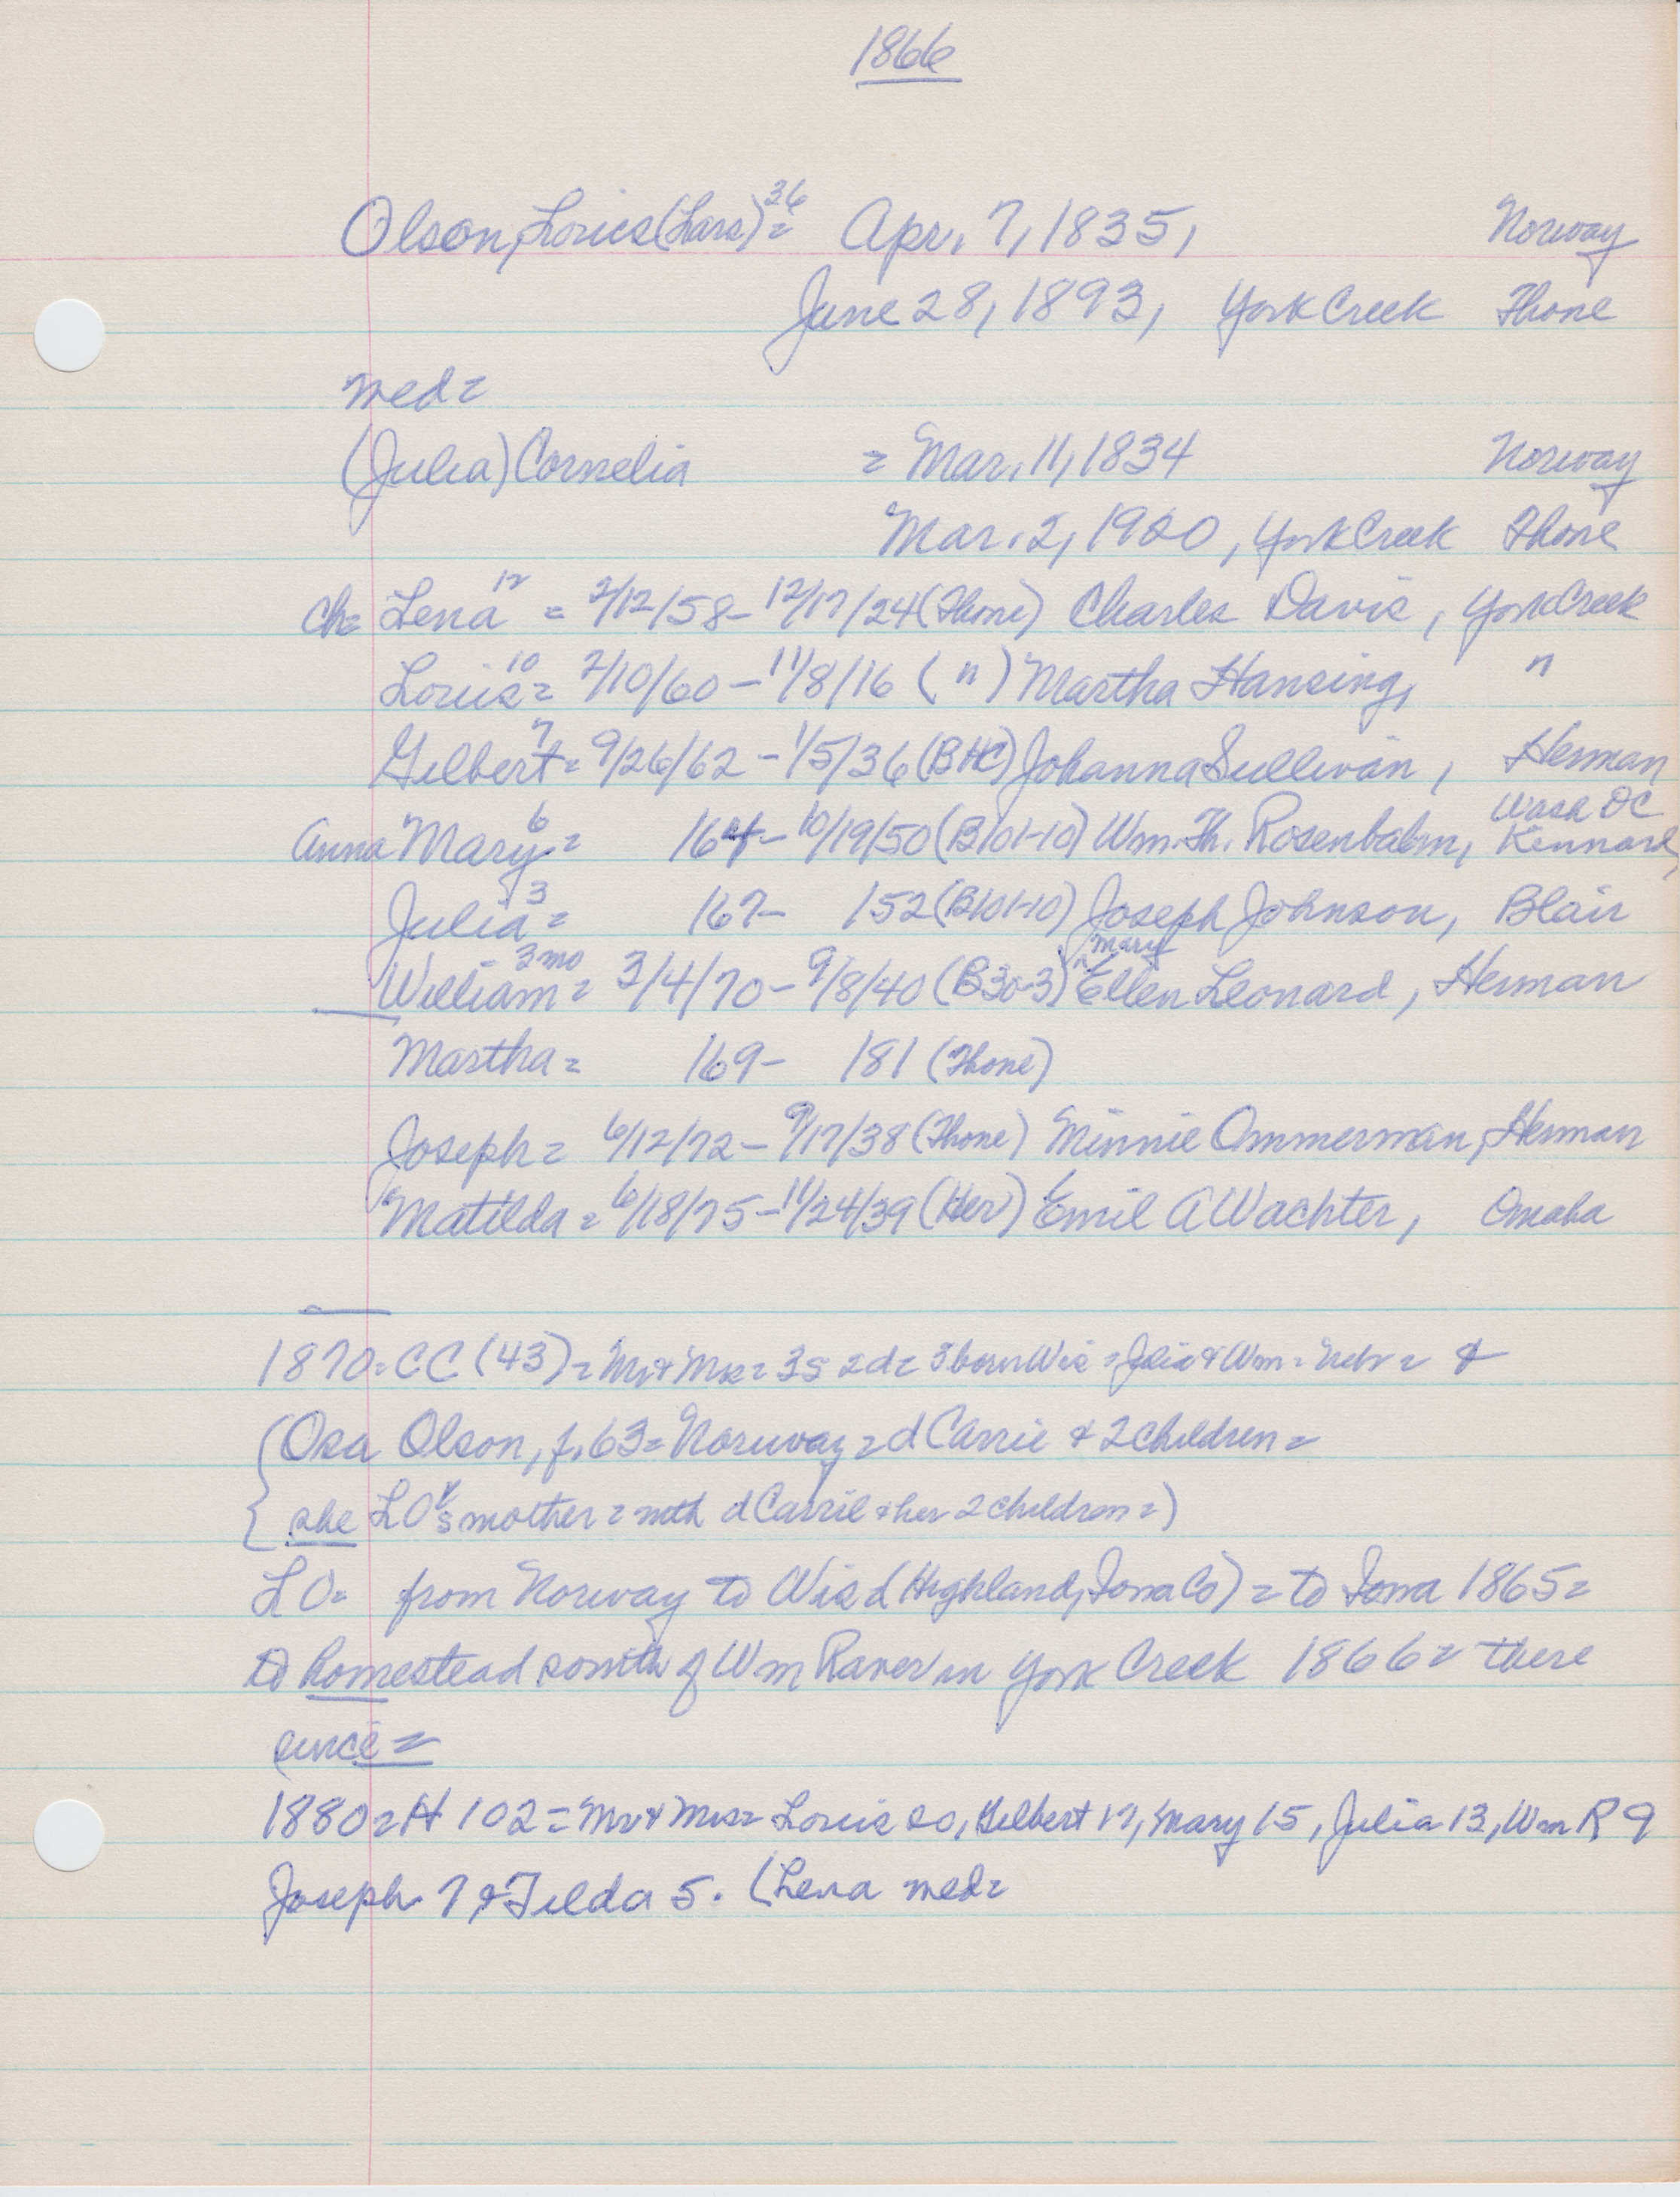 1866
Olson, Louis (Lars)³⁶ = Apr. 7, 1835, Norway
June 28, 1893, York Creek Thone
med =
(Julia) Cornelia = Mar. 11, 1834 Norway
Mar. 2, 1920, York Creek Thone
ch= Lena ¹² = 2/12/58 - 12/17/24 (Thone) Charles Davis, York Creek
Louis ¹⁰ = 2/10/60 - 11/8/16 ( " ) Martha Hansing, "
Gilbert ⁷ = 9/26/62 - 1/5/36 (BHC) Johanna Sullivan, Herman
Wash DC
Anna Mary ⁶ = 164 - 10/19/50 (B101-10) Wm. Th. Rosenbalm, Kennard,
Julia ³ = 167 - 152 (B101-10) Joseph Johnson, Blair
William ³ ᵐᵒ = 3/4/70 - 9/8/40 (B30-3) ^Mary Ellen Leonard, Herman
Martha = 169 - 181 (Thone)
Joseph = 6/12/72 - 9/17/38 (Thone) Minnie Ommerman, Herman
Matilda = 6/18/75 - 11/24/39 (Her) Emil A Wachter, Omaha
1870 = CC (43) = Mr & Mrs = 3s 2d = born Wis = Julia & Wm = Nebr = &
(Osa Olson, f. 63 = Norway = d Carrie & 2 children =
she LO's mother = with d Carrie & her 2 children =)
LO = from Norway to Wis d (Highland, Iowa Co) = to Iowa 1865 =
to homestead south of Wm Raver in York Creek 1866 = there
since =
1880 = H 102 = Mr & Mrs = Louis 20, Gilbert 17, Mary 15, Julia 13, Wm R 9
Joseph 7 & Tilda 5. (Lena med =